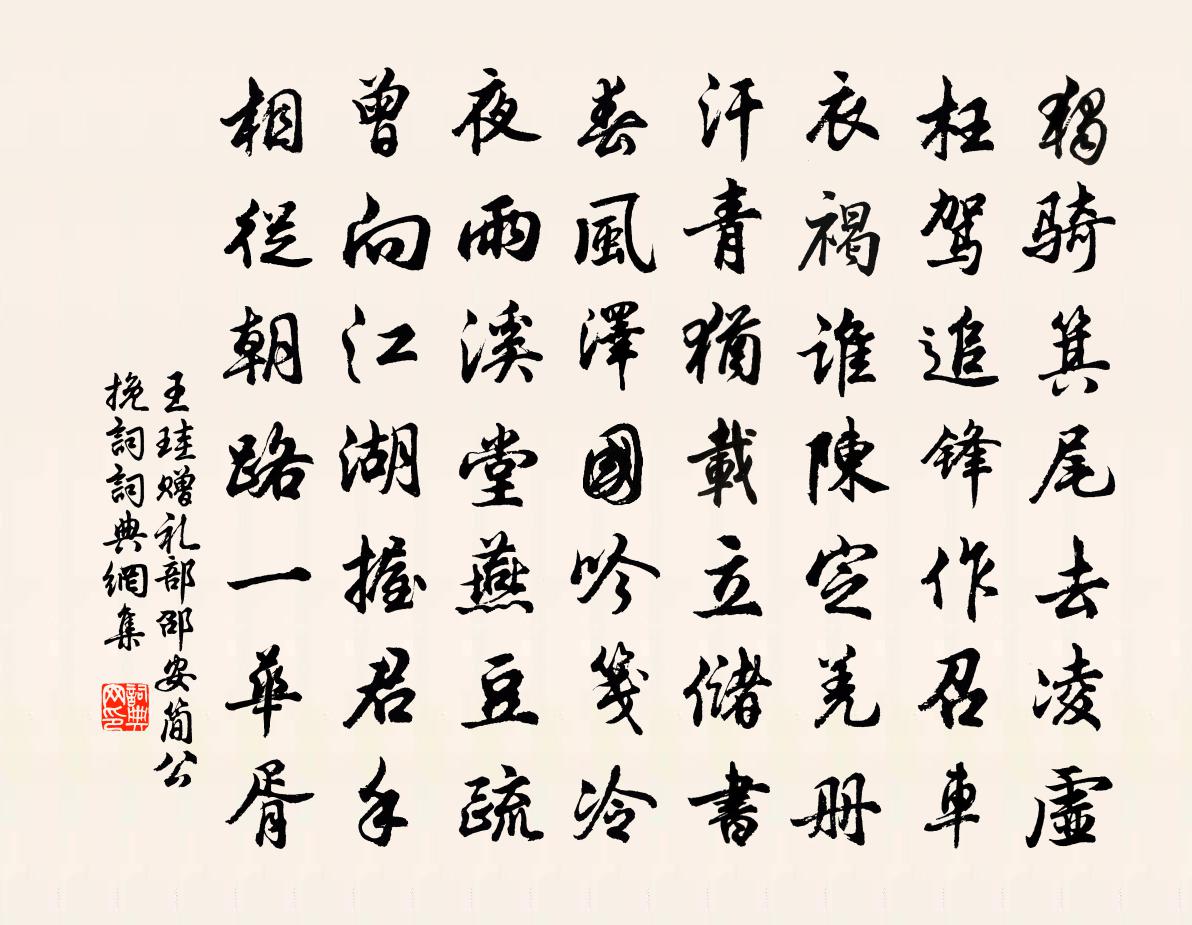 獨骑箕尾去凌虛
枉驾追锋作召車
衣褐谁陳定羌册
汗青猶載立儲書
春風澤國吟箋冷
夜雨溪堂燕豆疏
曾向江湖握君手
相從朝路一華胥
王珪赠礼部邵安简公
挽詞詞典網集
詞典网印